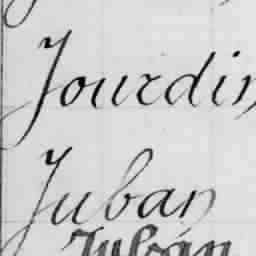 Jourdin
Juban
Juban